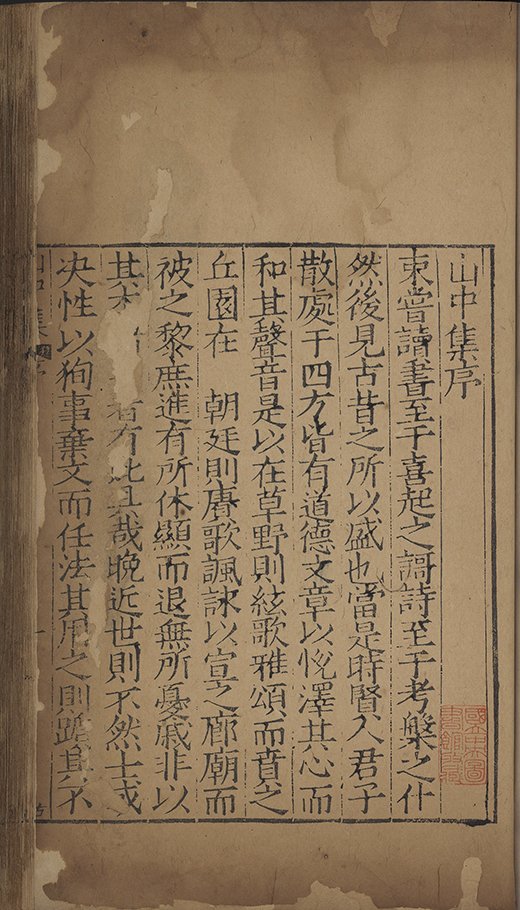 山中集序
東嘗讀書至于喜起之謌詩至于考槃之什
然後見古昔之所以盛也當是時賢人君子
散處于四方皆有道德文章以悅澤其心而
和其聲音是以在草野則絃歌雅頌而賁之
丘園在 朝廷則賡歌諷詠以宣之廊廟而
被之黎庶進有所休顯而退無所憂戚非以
其 者有此具哉晚近世則不然士或
决性以狥事棄文而任法其用之則 其不
山中集 序
國立中央圖書館